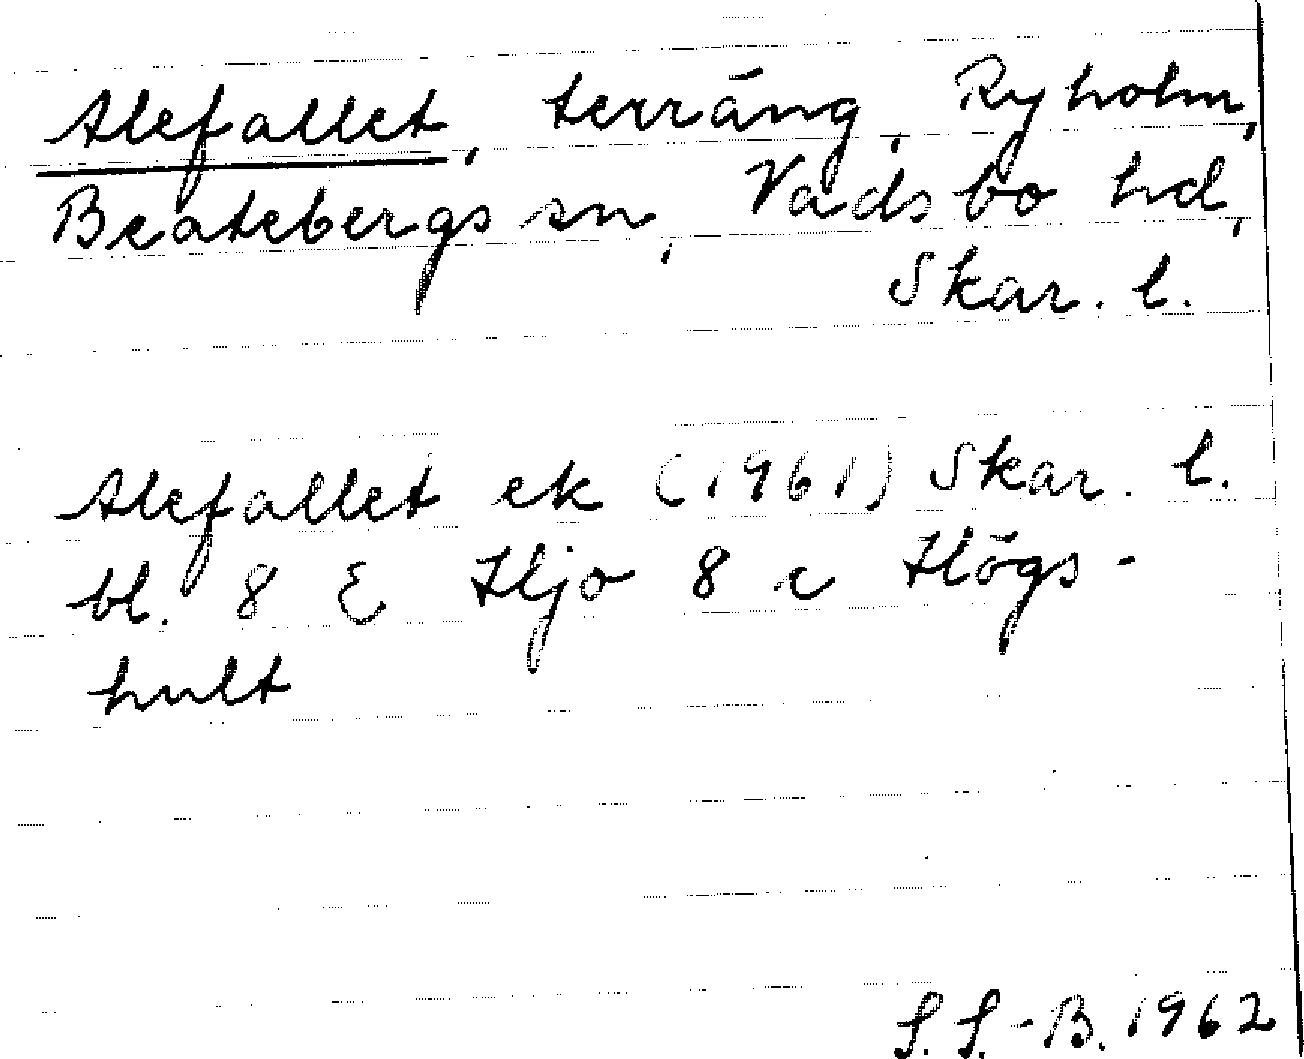 Alefallet, terräng, Ryholm,
Beatebergs sn, Vadsbo hd,
Skar. l.
Alefallet ek (1961) Skar. l.
bl. 8 E Hjo 8 c Högs-
hult
S. S.-B. 1962